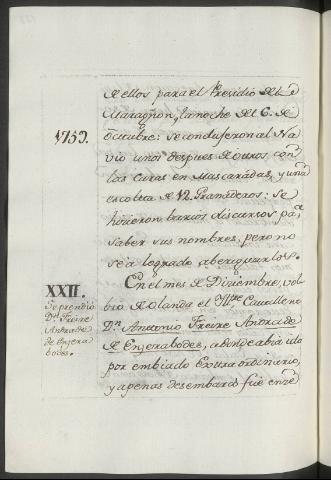 de ellos para el Presidio del
Maragnon, la noche del 6. de
1759.
octubre: se conduferon al Na
vio unos despues de otros, con
las caras en mascaradas, y una
escolta de 12. Granaderos: Se
hicieron barios discursos pa.ª
saber sus nombres, pero no
se a logrado aberiguarlos.
XXII.
Se prendió
D.n Freire
Andrade
de Enzera
bodes.
En el mes de Diziembre, vol
bio de Olanda el Ilt.re Cavallero
D.n Antonio Freire Andrade
de Enzerabodes, a donde abia ido
por embiado Extraordinario,
y apenas desembarcó fue enze